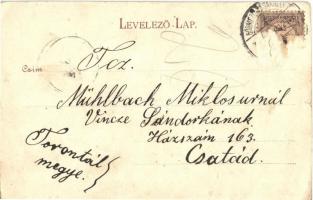 LEVELEZŐ LAP.
Czím
Tcz.
Mühlbach Miklosurnál
Vincze Sándorkának
Házszám 163.
Csatád.
Torontál
megye.